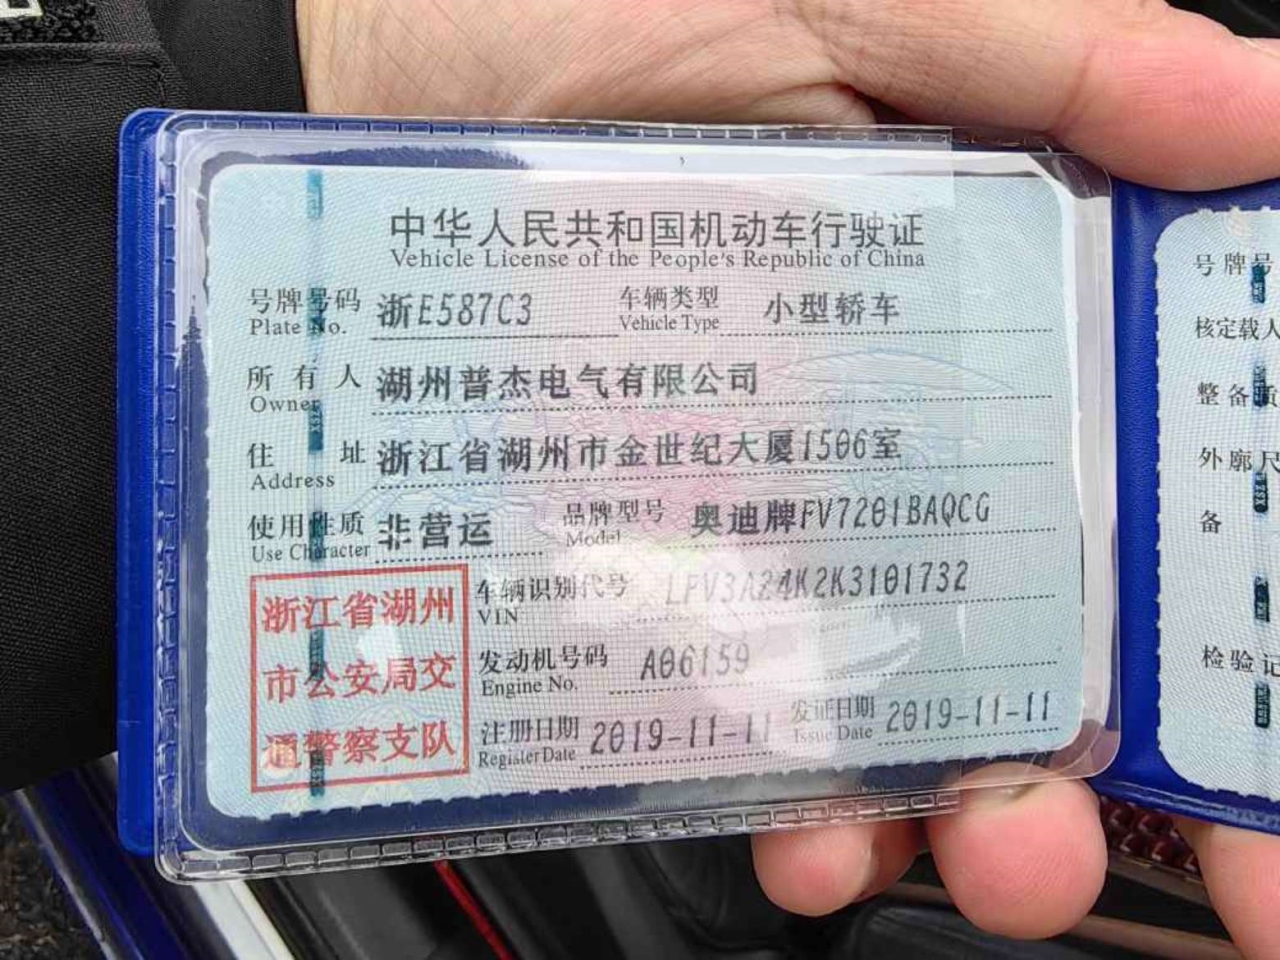 中华人民共和国机动车行驶证
Vehicle License of the People's Republic of China
号牌号码 浙E587C3 车辆类型 小型轿车
Plate No. Vehicle Type
所有人 湖州普杰电气有限公司
Owner
住址 浙江省湖州市金世纪大厦1506室
Address
使用性质 非营运 品牌型号 奥迪牌FV7201BAQCG
Use Character Model
浙江省湖州
市公安局交
通警察支队
车辆识别代号 LFV3A24K2K3101732
VIN
发动机号码 A06159
Engine No.
注册日期 2019-11-11 发证日期 2019-11-11
Register Date Issue Date
号牌号
核定载人
整备质
外廓尺
备
检验记